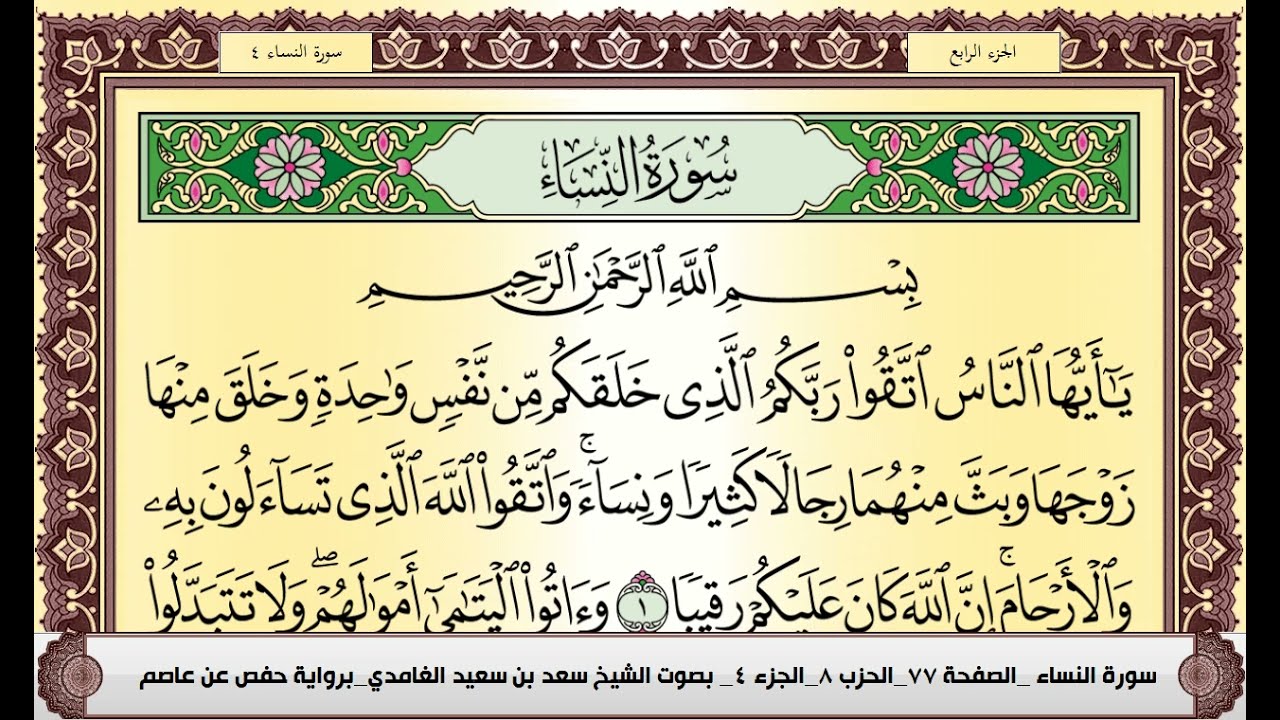 الجزء الرابع
سورة النساء ٤
سُورَةُ النِّسَاءِ
بِسْمِ ٱللَّهِ ٱلرَّحْمَٰنِ ٱلرَّحِيمِ
يَٰٓأَيُّهَا ٱلنَّاسُ ٱتَّقُوا۟ رَبَّكُمُ ٱلَّذِى خَلَقَكُم مِّن نَّفْسٍ وَٰحِدَةٍ وَخَلَقَ مِنْهَا
زَوْجَهَا وَبَثَّ مِنْهُمَا رِجَالًا كَثِيرًا وَنِسَآءً ۚ وَٱتَّقُوا۟ ٱللَّهَ ٱلَّذِى تَسَآءَلُونَ بِهِۦ
وَٱلْأَرْحَامَ ۚ إِنَّ ٱللَّهَ كَانَ عَلَيْكُمْ رَقِيبًا ١ وَءَاتُوا۟ ٱلْيَتَٰمَىٰٓ أَمْوَٰلَهُمْ ۖ وَلَا تَتَبَدَّلُوا۟
سورة النساء _الصفحة ٧٧_الحزب ٨_الجزء ٤_ بصوت الشيخ سعد بن سعيد الغامدي_برواية حفص عن عاصم